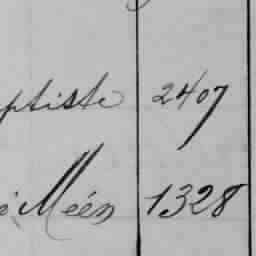 ptiste 2407
Méén 1328